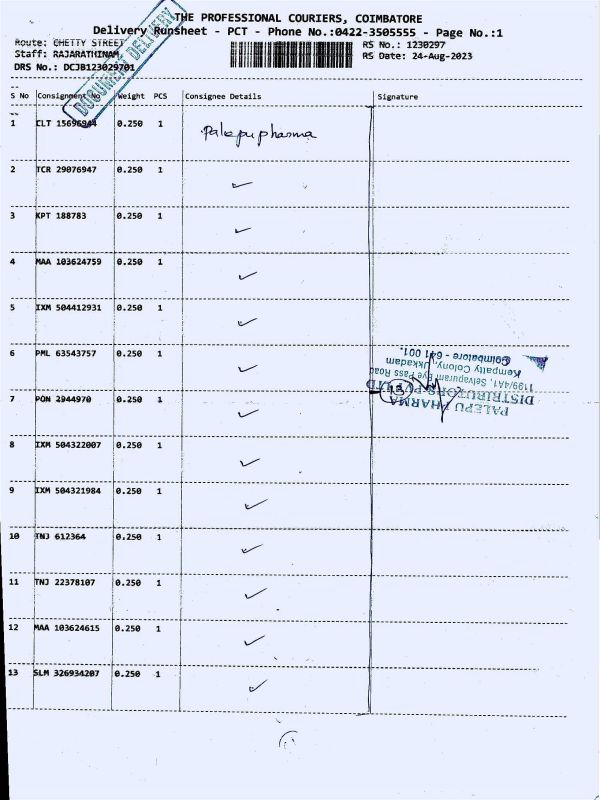 THE PROFESSIONAL COURIERS, COIMBATORE
Delivery Runsheet - PCT - Phone No.:0422-3505555 - Page No.:1
Route: CHETTY STREET
RS No.: 1230297
Staff: RAJARATHINAM
RS Date: 24-Aug-2023
DRS No.: DCJB123029701
DOCUMENT DELIVERY
S No Consignment No Weight PCS Consignee Details Signature
1 CLT 15696944 0.250 1 Palepu pharma
2 TCR 29076947 0.250 1 ✓
3 KPT 188783 0.250 1 ✓
4 MAA 103624759 0.250 1 ✓
5 IXM 504412931 0.250 1 ✓
6 PML 63543757 0.250 1 ✓
7 PON 2944970 0.250 1 ✓
8 IXM 504322007 0.250 1 ✓
9 IXM 504321984 0.250 1 ✓
10 TNJ 612364 0.250 1 ✓
11 TNJ 22378107 0.250 1 ✓
12 MAA 103624615 0.250 1 ✓
13 SLM 326934207 0.250 1 ✓
PALEPU PHARMA
DISTRIBUTORS PVT LTD
1199/4A1, Selvapuram Bye Pass Road
Kempatty Colony, Ukkadam
Coimbatore - 641 001.